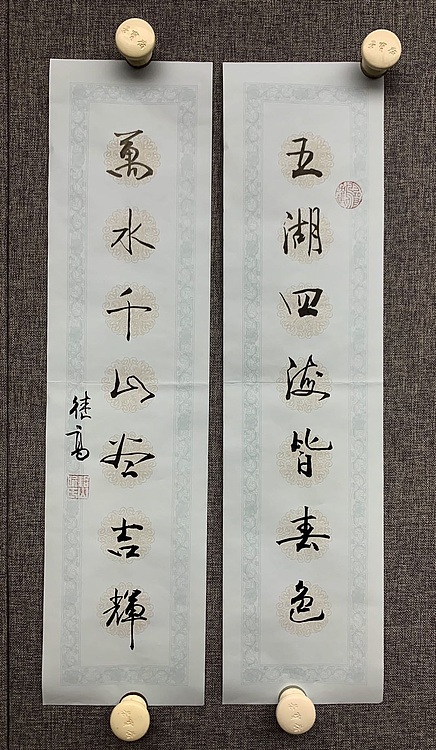 五湖四海皆春色
萬水千山尽吉輝
高